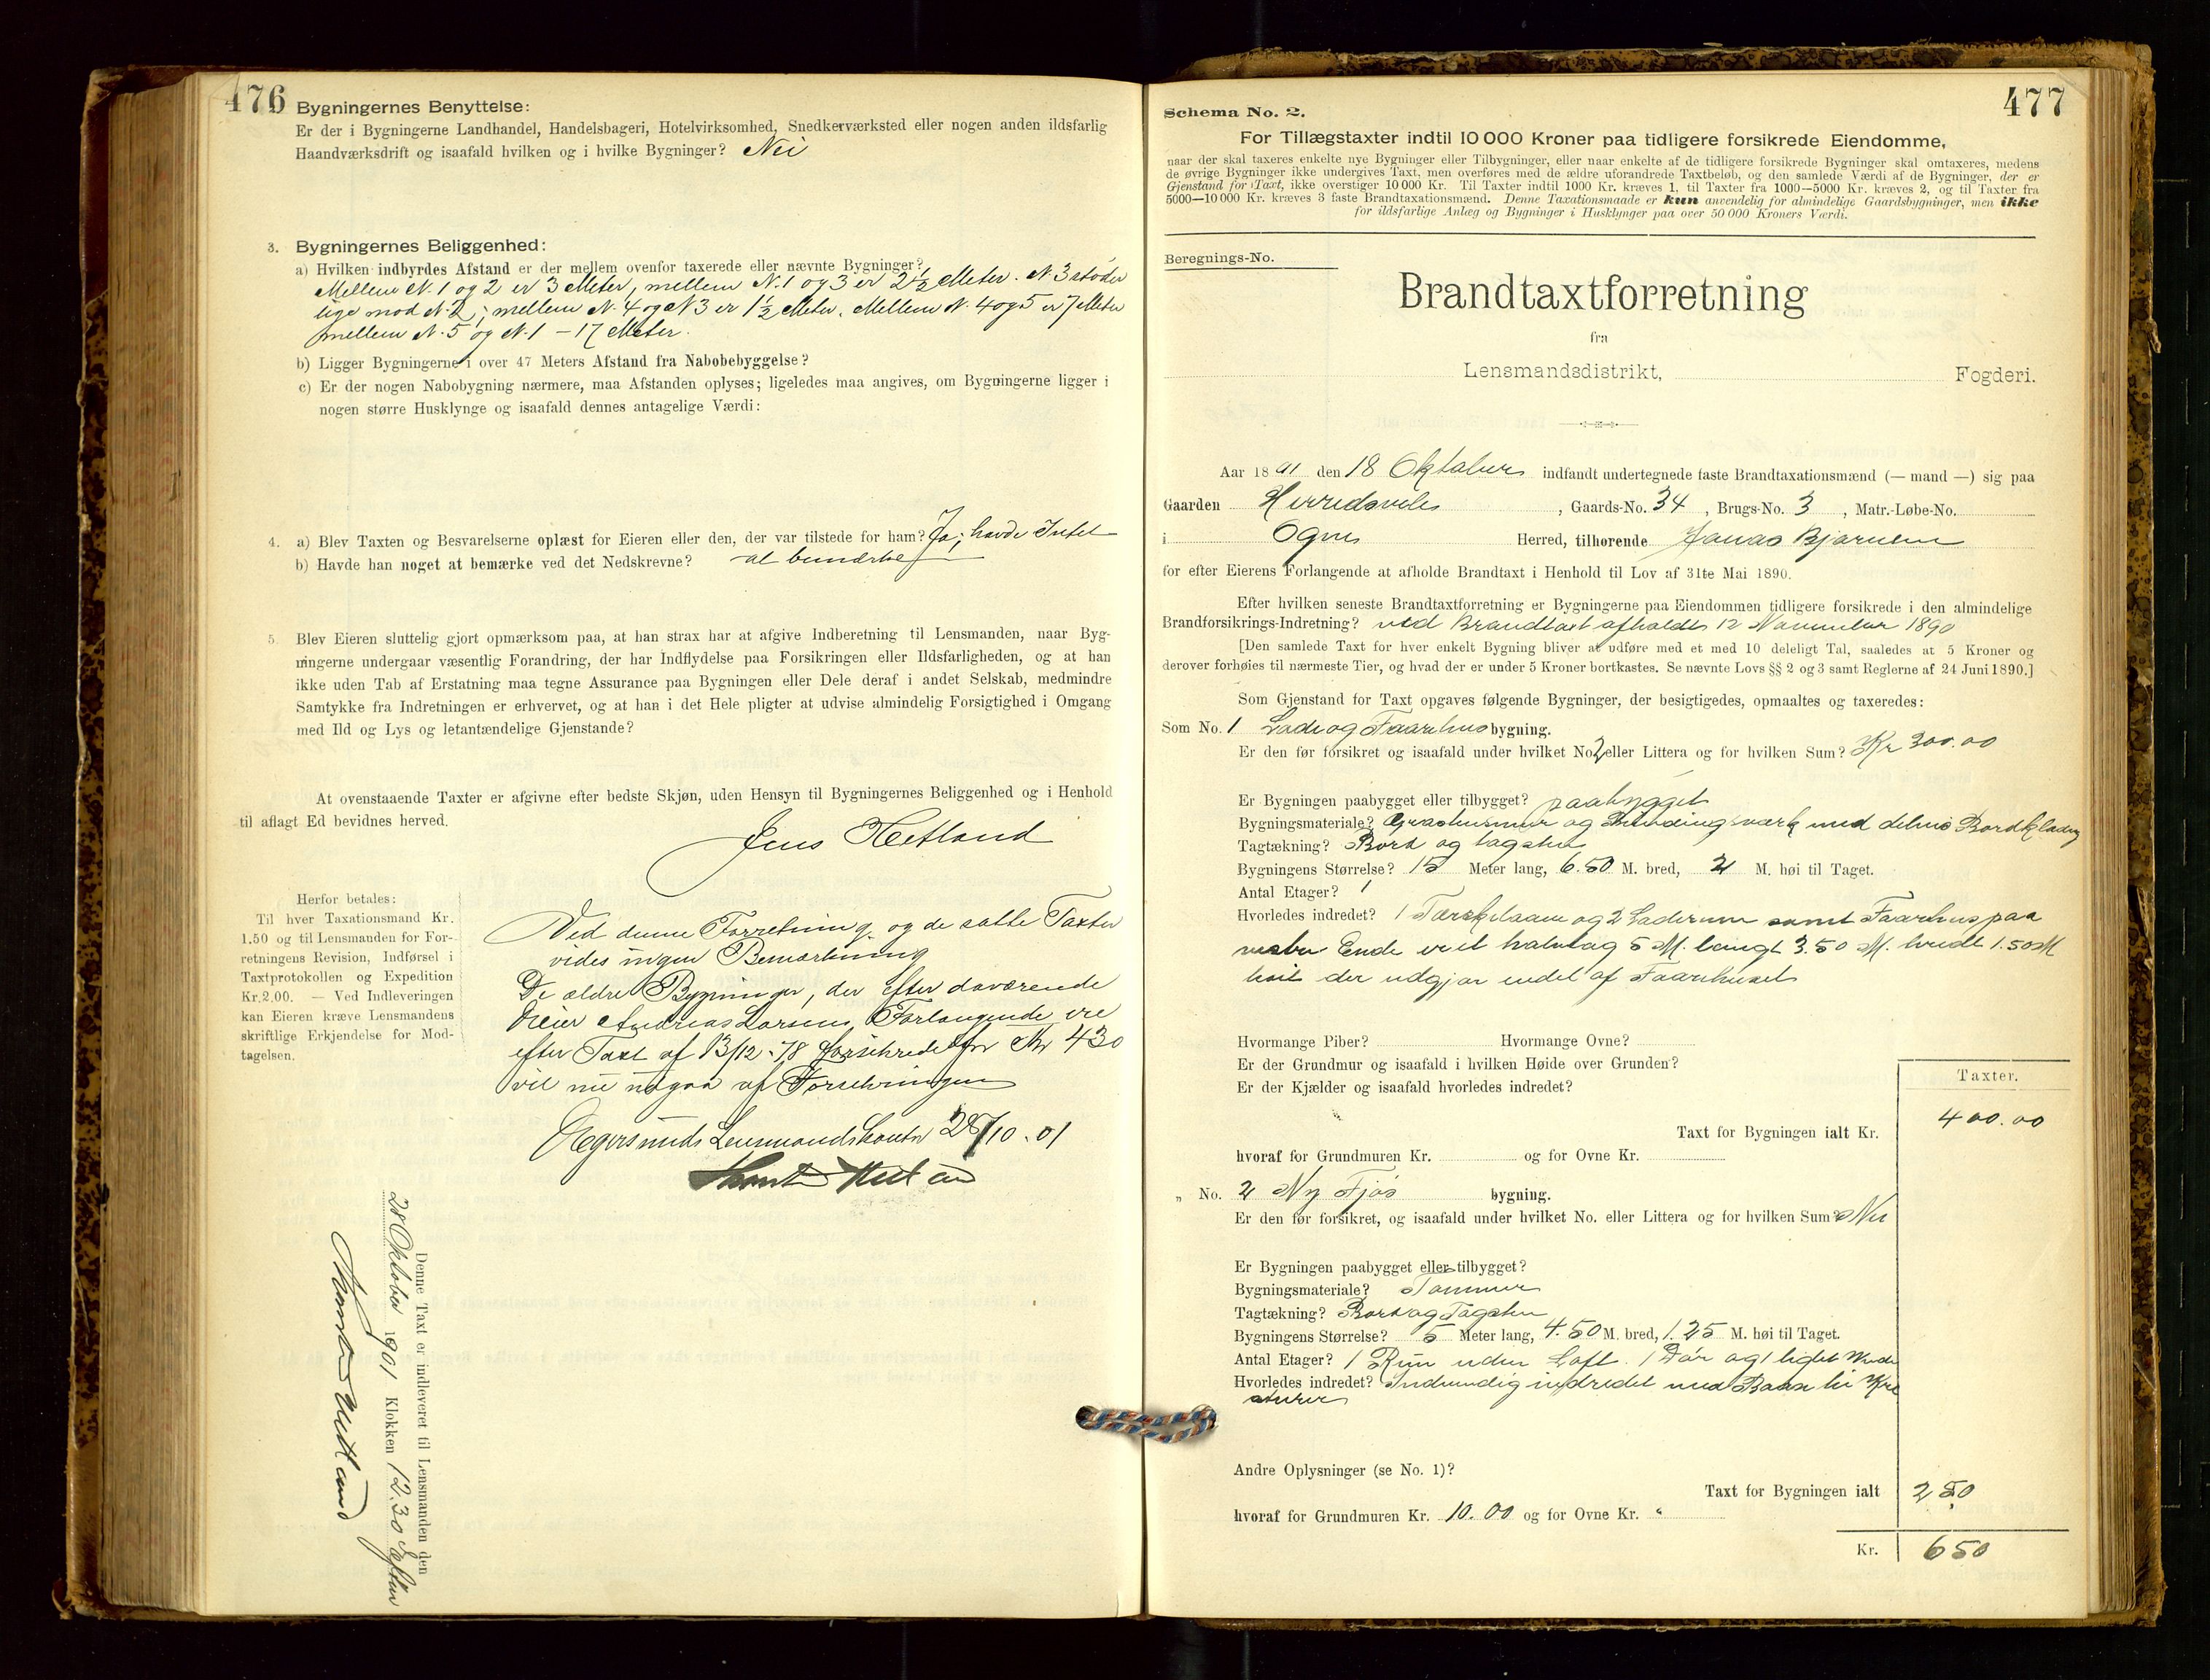 476
Bygningernes Benyttelse:
Er der i Bygningerne Landhandel, Handelsbageri, Hotelvirksomhed, Snedkerværksted eller nogen anden ildsfarlig
Haandværksdrift og isaafald hvilken og i hvilke Bygninger? Nei
3. Bygningernes Beliggenhed:
a) Hvilken indbyrdes Afstand er der mellem ovenfor taxerede eller nævnte Bygninger?
Mellem N. 1 og 2 er 3 Meter, mellem N. 1 og 3 er 2½ Meter. N 3 støder
lige mod N. 2; mellem N. 4 og N 3 er 1½ Meter. Mellem N. 4 og 5 er 7 Meter
mellem N. 5 og N. 1 – 17 Meter.
b) Ligger Bygningerne i over 47 Meters Afstand fra Nabobebyggelse?
c) Er der nogen Nabobygning nærmere, maa Afstanden oplyses; ligeledes maa angives, om Bygningerne ligger i
nogen større Husklynge og isaafald dennes antagelige Værdi:
4. a) Blev Taxten og Besvarelserne oplæst for Eieren eller den, der var tilstede for ham? Ja; havde Intet
b) Havde han noget at bemærke ved det Nedskrevne? at bemærke
5. Blev Eieren sluttelig gjort opmærksom paa, at han strax har at afgive Indberetning til Lensmanden, naar Byg-
ningerne undergaar væsentlig Forandring, der har Indflydelse paa Forsikringen eller Ildsfarligheden, og at han
ikke uden Tab af Erstatning maa tegne Assurance paa Bygningen eller Dele deraf i andet Selskab, medmindre
Samtykke fra Indretningen er erhvervet, og at han i det Hele pligter at udvise almindelig Forsigtighed i Omgang
med Ild og Lys og letantændelige Gjenstande?
At ovenstaaende Taxter er afgivne efter bedste Skjøn, uden Hensyn til Bygningernes Beliggenhed og i Henhold
til aflagt Ed bevidnes herved.
Jens Hetland
Herfor betales:
Til hver Taxationsmand Kr.
1.50 og til Lensmanden for For-
retningens Revision, Indførsel i
Taxtprotokollen og Expedition
Kr. 2.00. — Ved Indleveringen
kan Eieren kræve Lensmandens
skriftlige Erkjendelse for Mod-
tagelsen.
Ved denne Forretning og de satte Taxter
vides ingen Bemærkning
De ældre Bygninger, der efter daværende
Eier Andreas Larsens Forlangende ere
efter Taxt af 13/12 78 forsikrede for Kr 430
vil nu udgaa af Forsikringen
Egersunds Lensmandskontor 28/10.01
Denne Taxt er indleveret til Lensmanden den
28 Oktober 1901 Klokken 12.30 Efterm
477
Schema No. 2.
For Tillægstaxter indtil 10 000 Kroner paa tidligere forsikrede Eiendomme,
naar der skal taxeres enkelte nye Bygninger eller Tilbygninger, eller naar enkelte af de tidligere forsikrede Bygninger skal omtaxeres, medens
de øvrige Bygninger ikke undergives Taxt, men overføres med de ældre uforandrede Taxtbeløb, og den samlede Værdi af de Bygninger, der er
Gjenstand for Taxt, ikke overstiger 10 000 Kr. Til Taxter indtil 1000 Kr. kræves 1, til Taxter fra 1000—5000 Kr. kræves 2, og til Taxter fra
5000—10 000 Kr. kræves 3 faste Brandtaxationsmænd. Denne Taxationsmaade er kun anvendelig for almindelige Gaardsbygninger, men ikke
for ildsfarlige Anlæg og Bygninger i Husklynger paa over 50 000 Kroners Værdi.
Beregnings-No.
Brandtaxtforretning
fra
Lensmandsdistrikt, Fogderi.
Aar 1891 den 18 Oktober indfandt undertegnede faste Brandtaxationsmænd (— mand —) sig paa
Gaarden Herredsvela, Gaards-No. 34, Brugs-No. 3, Matr.-Løbe-No.
i Ogne Herred, tilhørende Jonas Bjørnsen
for efter Eierens Forlangende at afholde Brandtaxt i Henhold til Lov af 31te Mai 1890.
Efter hvilken seneste Brandtaxtforretning er Bygningerne paa Eiendommen tidligere forsikrede i den almindelige
Brandforsikrings-Indretning? ved Brandtaxt afholdt 12 November 1890
[Den samlede Taxt for hver enkelt Bygning bliver at udføre med et med 10 deleligt Tal, saaledes at 5 Kroner og
derover forhøies til nærmeste Tier, og hvad der er under 5 Kroner bortkastes. Se nævnte Lovs §§ 2 og 3 samt Reglerne af 24 Juni 1890.]
Som Gjenstand for Taxt opgaves følgende Bygninger, der besigtigedes, opmaaltes og taxeredes:
Som No. 1 Lade og Faarehus bygning.
Er den før forsikret og isaafald under hvilket No. 2 eller Littera og for hvilken Sum? Kr 300.00
Er Bygningen paabygget eller tilbygget? paabygget
Bygningsmateriale? Graastensmur og Bindingsværk med delvis Bordklædng
Tagtækning? Bord og tagsten
Bygningens Størrelse? 15 Meter lang, 6.50 M. bred, 2 M. høi til Taget.
Antal Etager? 1
Hvorledes indredet? 1 Tærskelaave og 2 Laderum samt Faarehus paa
vestre Ende er et halvtag 5 M. langt 3.50 M. bredt 1.50 M
høit der udgjør endel af Faarehuset
Hvormange Piber? Hvormange Ovne?
Er der Grundmur og isaafald i hvilken Høide over Grunden?
Er der Kjælder og isaafald hvorledes indredet?
Taxter.
Taxt for Bygningen ialt Kr. 400.00
hvoraf for Grundmuren Kr. og for Ovne Kr.
„ No. 2 Ny Fjøs bygning.
Er den før forsikret, og isaafald under hvilket No. eller Littera og for hvilken Sum? Nei
Er Bygningen paabygget eller tilbygget?
Bygningsmateriale? Tømmer
Tagtækning? Bord og Tagsten
Bygningens Størrelse? 5 Meter lang, 4.50 M. bred, 1.25 M. høi til Taget.
Antal Etager? 1 Rum uden Loft. 1 Dør og 1 liglet Vindu
Hvorledes indredet? Indvendig indredet med Baase til Kre
aturer
Andre Oplysninger (se No. 1)?
Taxt for Bygningen ialt 250
hvoraf for Grundmuren Kr. 10.00 og for Ovne Kr. "
Kr. 650